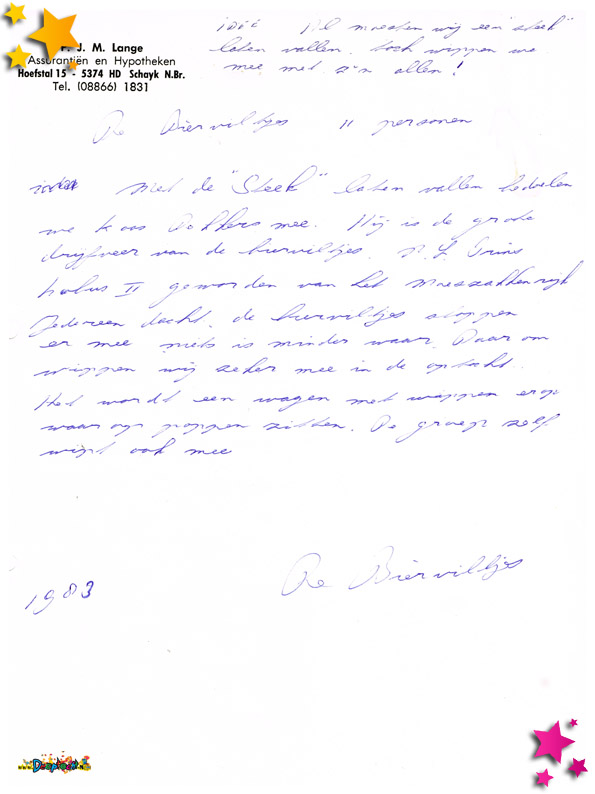 J. M. Lange
Assurantiën en Hypotheken
Hoefstal 15 - 5374 HD Schayk N.Br.
Tel. (08866) 1831
idee moesten wij een "steek"
laten vallen. Toch wippen we
mee met z'n allen!
De Bierviltjes 11 personen
Met de "Steek" laten vallen bedoelen
we Dekkers mee. Hij is de grote
dryfveer van de bierviltjes. Prins
II geworden van het Moeszakkenryk
Iedereen dacht, de bierviltjes stoppen
er mee niets is minder waar. Daarom
wippen wij zeker mee in de optocht.
Het wordt een wagen met wippen erop
waarop poppen zitten. De groep zelf
wipt ook mee
De Bierviltjes
1983